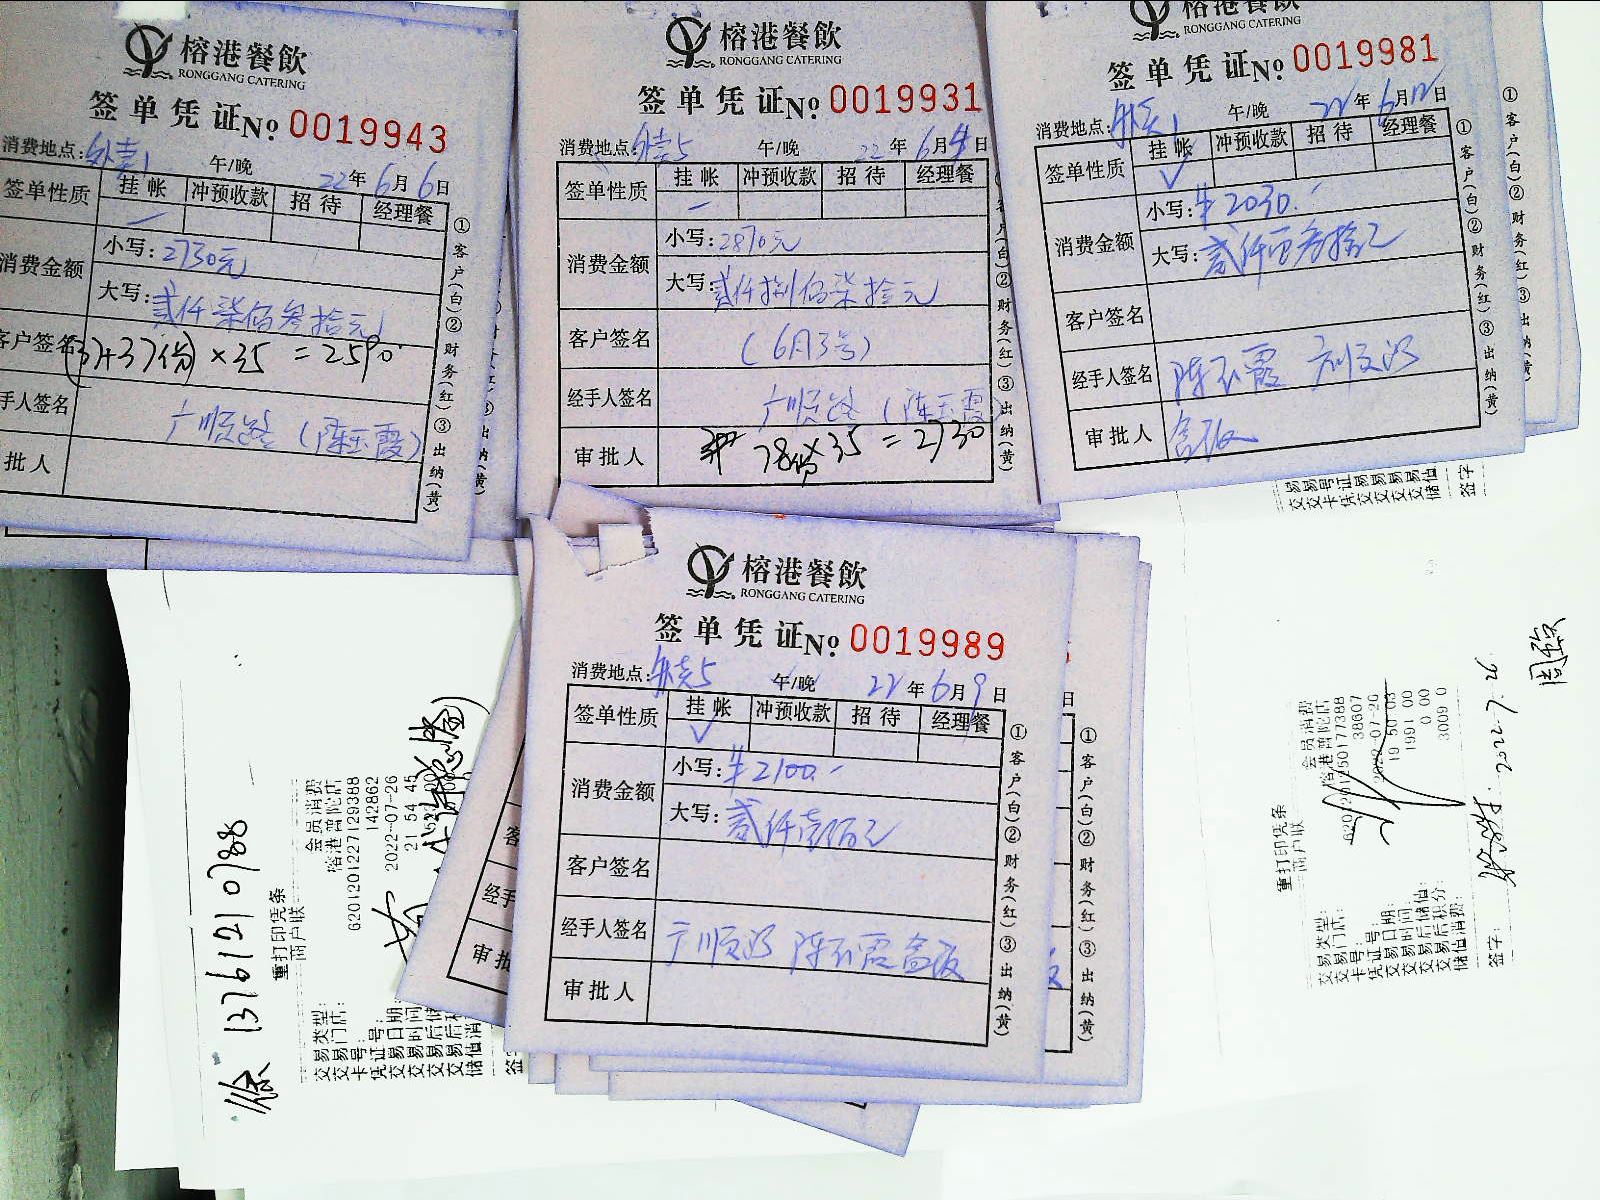 榕港餐飲
RONGGANG CATERING
签单凭证 No 0019943
消费地点: 外卖1 午/晚 22年6月6日
签单性质 挂帐 冲预收款 招待 经理餐
消费金额 小写: 2730元
大写: 贰仟柒佰叁拾元
客户签名
(37+37份)×35=2590
经手人签名 广顺路(陈玉霞)
批人
①客户(白)②财务(红)③出纳(黄)
榕港餐飲
RONGGANG CATERING
签单凭证 No 0019931
消费地点: 外卖5 午/晚 22年6月4日
签单性质 挂帐 冲预收款 招待 经理餐
消费金额 小写: 2870元
大写: 贰仟捌佰柒拾元
客户签名 (6月3号)
经手人签名 广顺路(陈玉霞)
审批人 78份×35=2730
客户(白)②财务(红)③出纳(黄)
榕港餐飲
RONGGANG CATERING
签单凭证 No 0019981
消费地点: 外卖1 午/晚 22年6月12日
签单性质 挂帐 冲预收款 招待 经理餐
✓
消费金额 小写: ¥2030.-
大写: 贰仟零叁拾元
客户签名
经手人签名 陈玉霞 广顺路
审批人 盒饭
①客户(白)②财务(红)③出纳(黄)
①客户(白)②财务(红)③出纳(黄)
榕港餐飲
RONGGANG CATERING
签单凭证 No 0019989
消费地点: 外卖5 午/晚 22年6月9日
签单性质 挂帐 冲预收款 招待 经理餐
✓
消费金额 小写: ¥2100.-
大写: 贰仟壹佰元
客户签名
经手人签名 广顺路 陈玉霞 盒饭
审批人
①客户(白)②财务(红)③出纳(黄)
日
①客户(白)②财务(红)③出纳(黄)
客
经手
审批
徐 13761210788
重打印凭条
商户联
交易类型: 会员消费
交易门店: 榕港普陀店
卡号: 6201201227129388
凭证号: 142862
交易日期: 2022-07-26
交易时间: 21 54 45
交易后储
交易后积
储值消
签字
重打印凭条
商户联
交易类型: 会员消费
交易门店: 榕港普陀店
卡号: 6201201250177388
凭证号: 38607
交易日期: 2022-07-26
交易时间: 19 50 03
交易后储值: 1991 00
交易后积分: 0 00
储值消费: 3009 0
签字:
2022.7.26
交易
交易
卡号
凭证
交易
交易
交易
交易
储值
签字